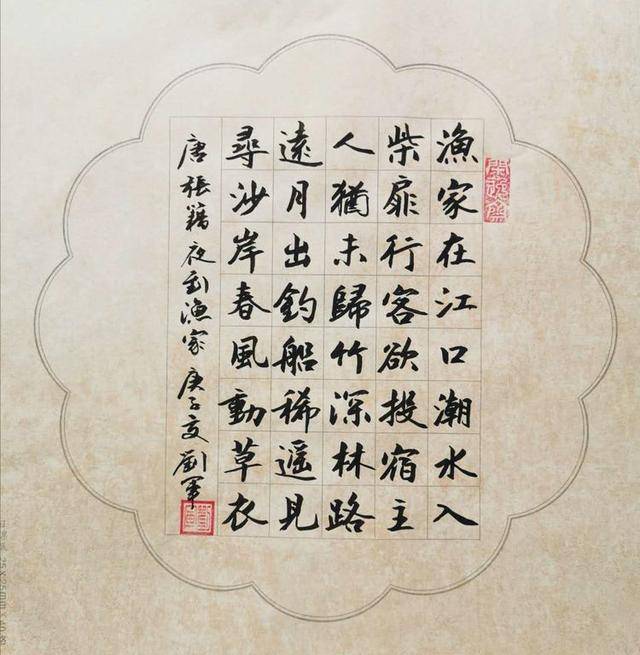 漁家在江口潮水入
柴扉行客欲投宿主
人猶未歸竹深林路
遠月出釣船稀遙見
尋沙岸春風動草衣
唐張籍夜到漁家庚子夏劉軍